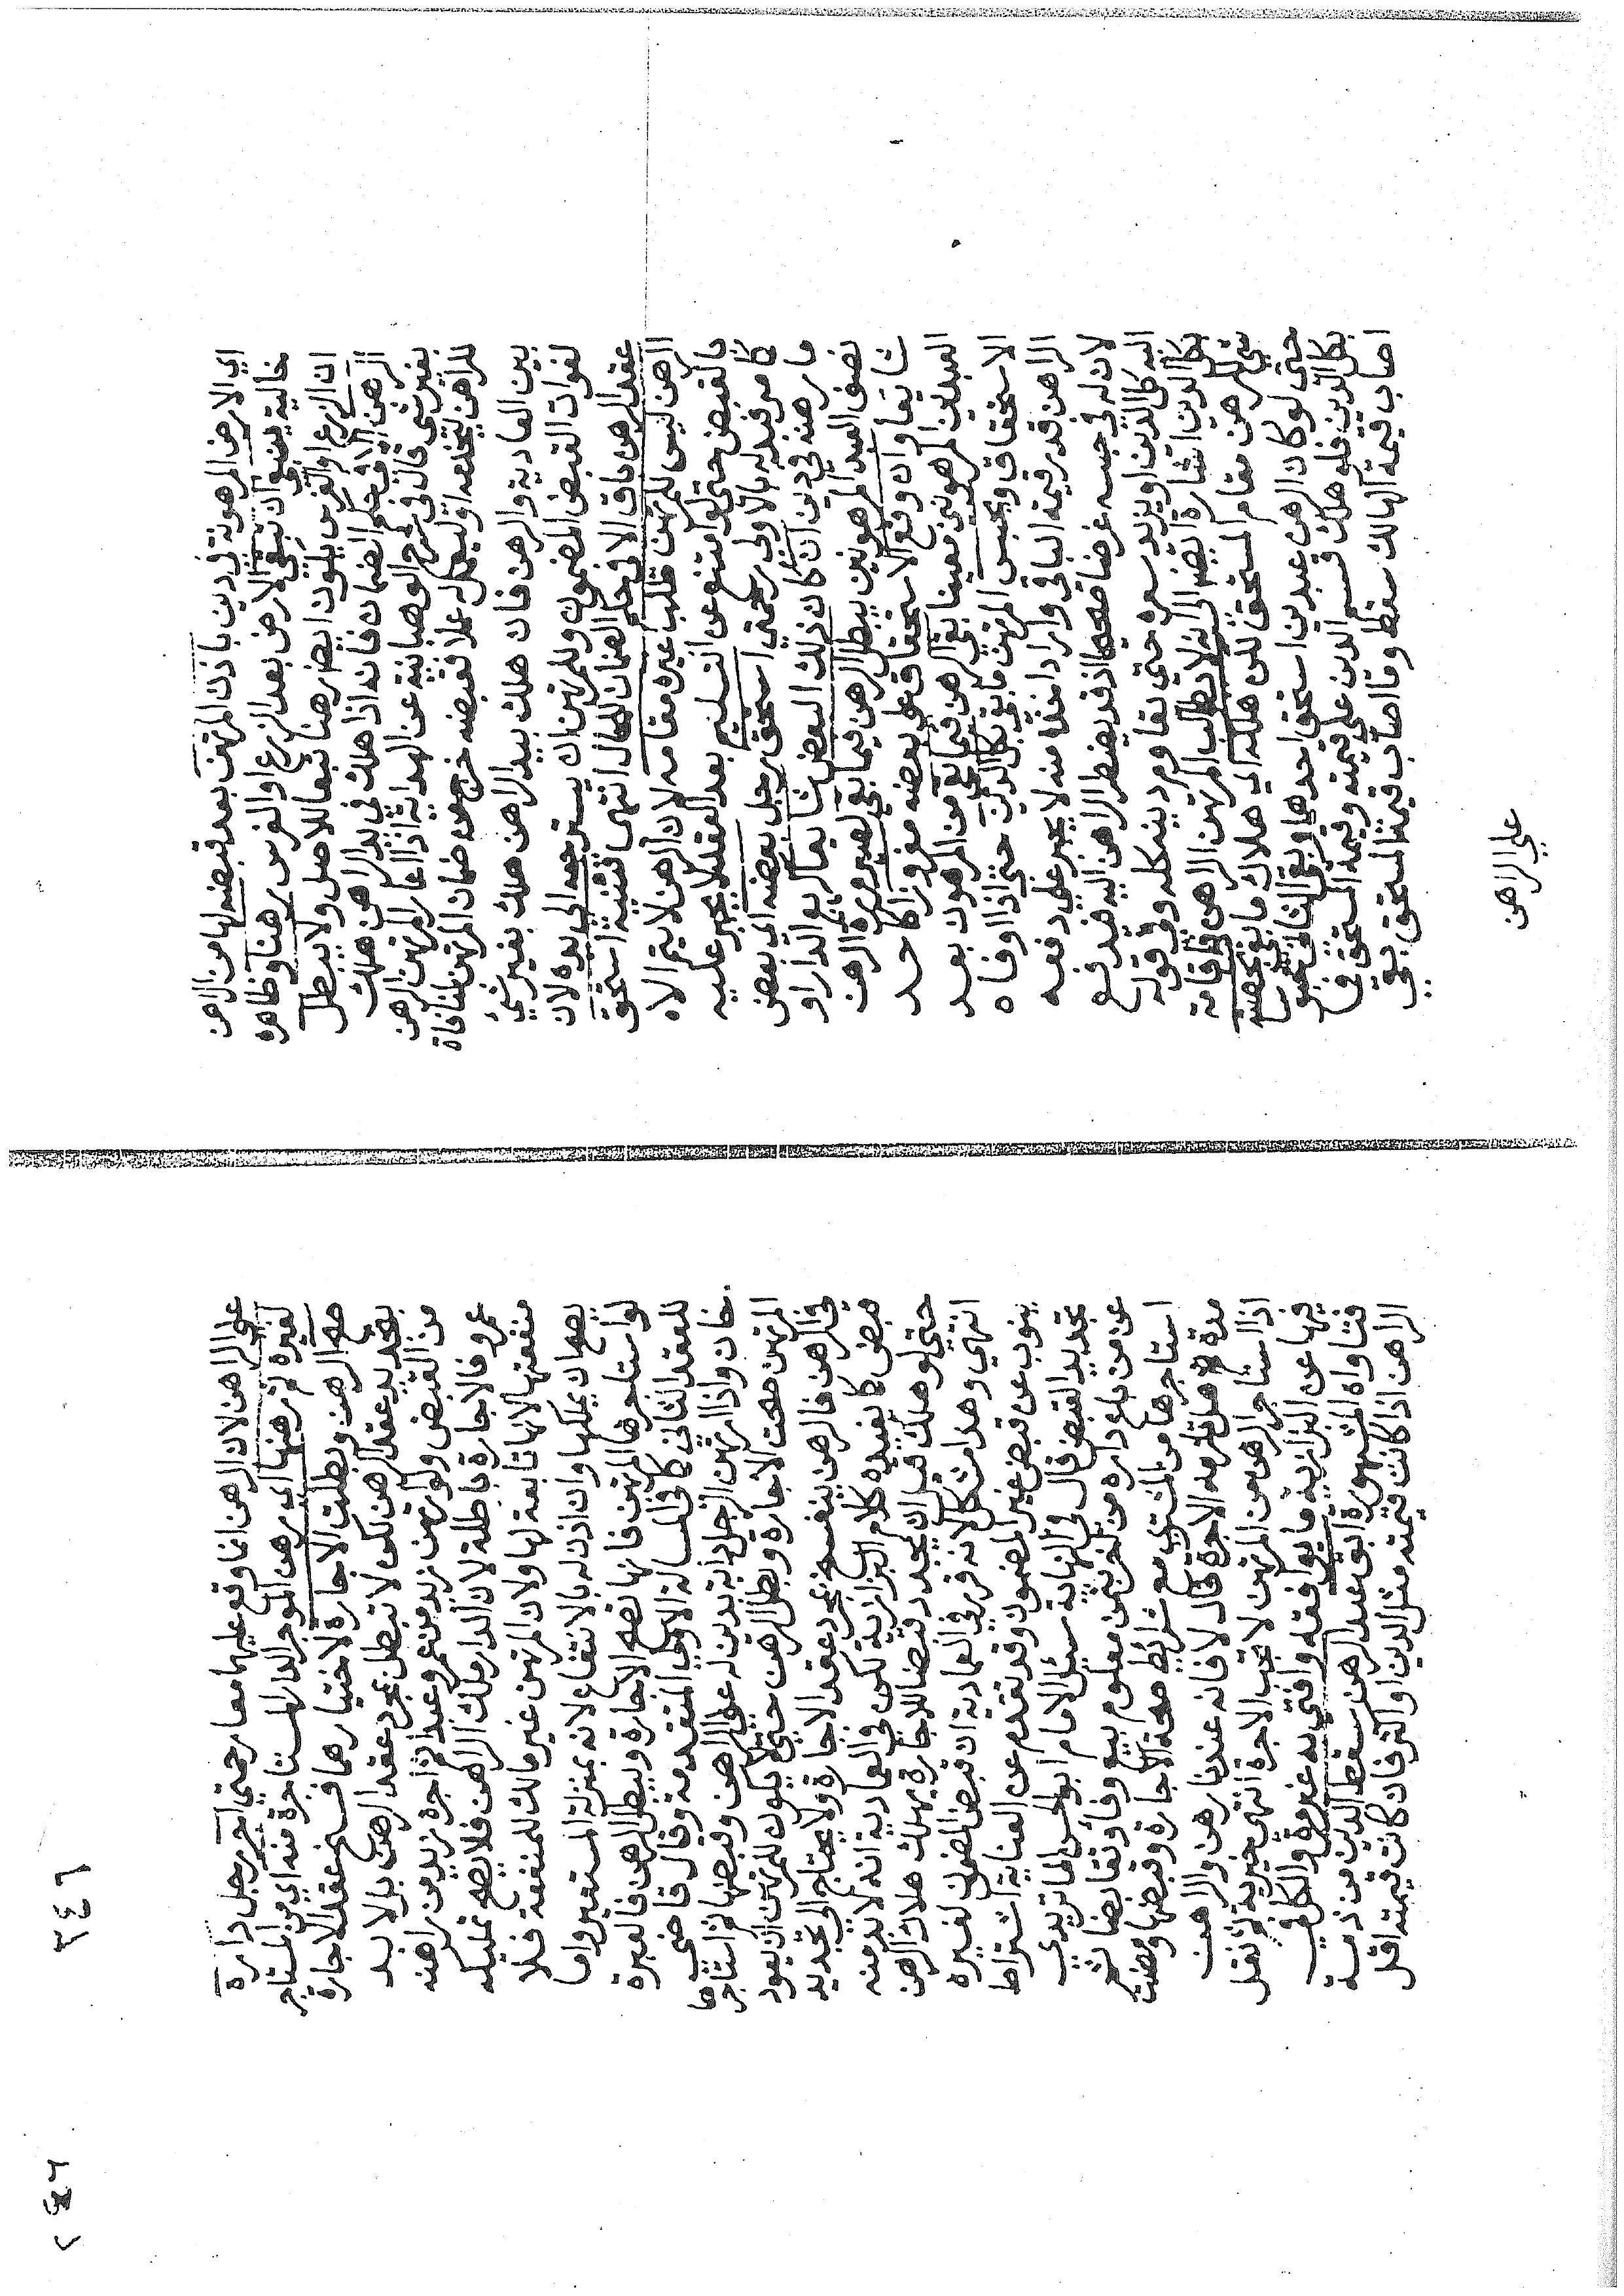 اي الارض المرهونة في دين باذن المرتهن بعد قبضه لها من الراهن
خالية ينبغي ان تبقى الارض بعد الزرع او الغرس رهنا وظاهره
ان الزرع او الغرس يكون ايضا رهنا تبعا للاصل ولا يبطل
الرهن الا في حكم الضمان فانه اذا هلك في يد الراهن هلك
بغير شي قال في شرح الوهبانية عن الهداية اذا اعار المرتهن الرهن
للراهن ليخدمه او ليعمل له عملا فقبضه خرج من ضمان المرتهن لمنافاة
بين العادية والرهن فان هلك بيد الراهن هلك بغير شي
لفوات القبض المضمون وللمرتهن ان يسترجعه الى يده لان
عقد الرهن باق الا في حكم الضمان للحال انتهى تنبيه استحق
الرهن ليس للمرتهن طلب غيره مقامه لان الرهن لا يتم الا
بالقبض حتى لو امتنع عن التسليم بعد العقد لا يجبر عليه
كما مر فبدله بالاولى رحمتي استحق رجل بعضه اي بعض
ما رهنه في دين ان كان ذلك البعض شايعا كربع الدار او
نصف العبد المرهونين يبطل الرهن فيما بقي لصيرورة الرهن
شايعا وان وقع الاستحقاق على بعضه مفروزا كاحد
العبدين المرهونين معينا بقي الرهن فيما بقي من المرهون بعد
الاستحقاق ويحبس المرتهن ما بقي بكل الدين حتى اذا اوفاه
الراهن قدر قيمة الباقي واراد اخذه منه لا يجبر على دفعه
لان له في حبسه غرضا صحيحا اذ قد يضطر الراهن اليه فيدفع
اليه كل الدين او يزيد سعره حتى يقاوم دينه كله وفي قوله
بكل الدين اشارة ايضا الى انه لا يطلب المرتهن الراهن باقامة
شي للرهن مقام المستحق لكن هلكه اي هلاك ما بقي بحصته
حتى لو كان الرهن عبدين استحق احدهما وبقي الثاني محبوسا
بكل الدين فلو هلك قسم الدين على قيمته وقيمة المستحق فما
اصاب قيمة الهالك سقط وما اصاب قيمة المستحق بقي
علي الرهن
على الراهن لان الرهن انما وقع عليهما معا رحمتي اجر رجل داره
لغيره ثم رهنها اي رهن الموجر الدار المستاجرة منه اي من المستاجر
صح الرهن وبطلت الاجارة لاختيارهما فسخ عقد الاجارة
بتجديد عقد الرهن لكن لا تبطل بمجرد عقد الرهن بل لا بد
من القبض ولو ارتهن زيد من عمرو عبدا ثم اجره زيد من راهنه
عمرو فالاجارة باطلة لان الدار ملك الراهن فلا يصح تمليكه
منفعتها لانها تابعة لها ولان المرتهن غير مالك للمنفعة فلا
يصح ان يملكها وان اذن له بالانتفاع لانه بمنزلة المستعير واما
لو استاجرها المرتهن فانها تصح الاجارة ويبطل الرهن فالعبرة
للعقد الثاني كما في المسالة الاولى المتقدمة وقال قاضي
خان واذا ارتهن الرجل دابة بدين له على الراهن وقبضها ثم استاجرها
المرتهن صحت الاجارة وبطل الرهن حتى لا يكون للمرتهن ان يعود
في الرهن فالرهن ينفسخ بمجرد عقد الاجارة ولا يحتاج الى تجديد
قبض كما يفيده كلام البزازية لكن في العمادية انه لا بد منه
حتى لو هلك قبل ان يجدد قبضا للاجارة يهلك هلاك الرهن
انتهي وهذا مشكل لانه قرر في العمادية ان قبض المضمون لغيره
ينوب عن قبض غير المضمون وقد تقدم عن العناية اشتراط
تجديد القبض قال في النهاية سئل الامام ابو الحسن الماتريدي
عن من باع داره من اخر بثمن معلوم بيع وفا وتقابضا ثم
استاجرها من المشتري مع شرائط صحة الاجارة وقبضها ومضت
مدة هل تلزمه الاجرة قال لا فانه عندنا رهن والراهن
اذا استاجر الرهن من المرتهن لا تجب الاجرة انتهى خيرية ثم نقل
فيها عن البزازية ما يوافقه وافتى به غير مرة والكل في
فتاواه المشهورة ابق عبد الرهن سقط الدين من ذمة
الراهن اذا كانت قيمته مثل الدين او اكثر فان كانت قيمته اقل
٣٤٦